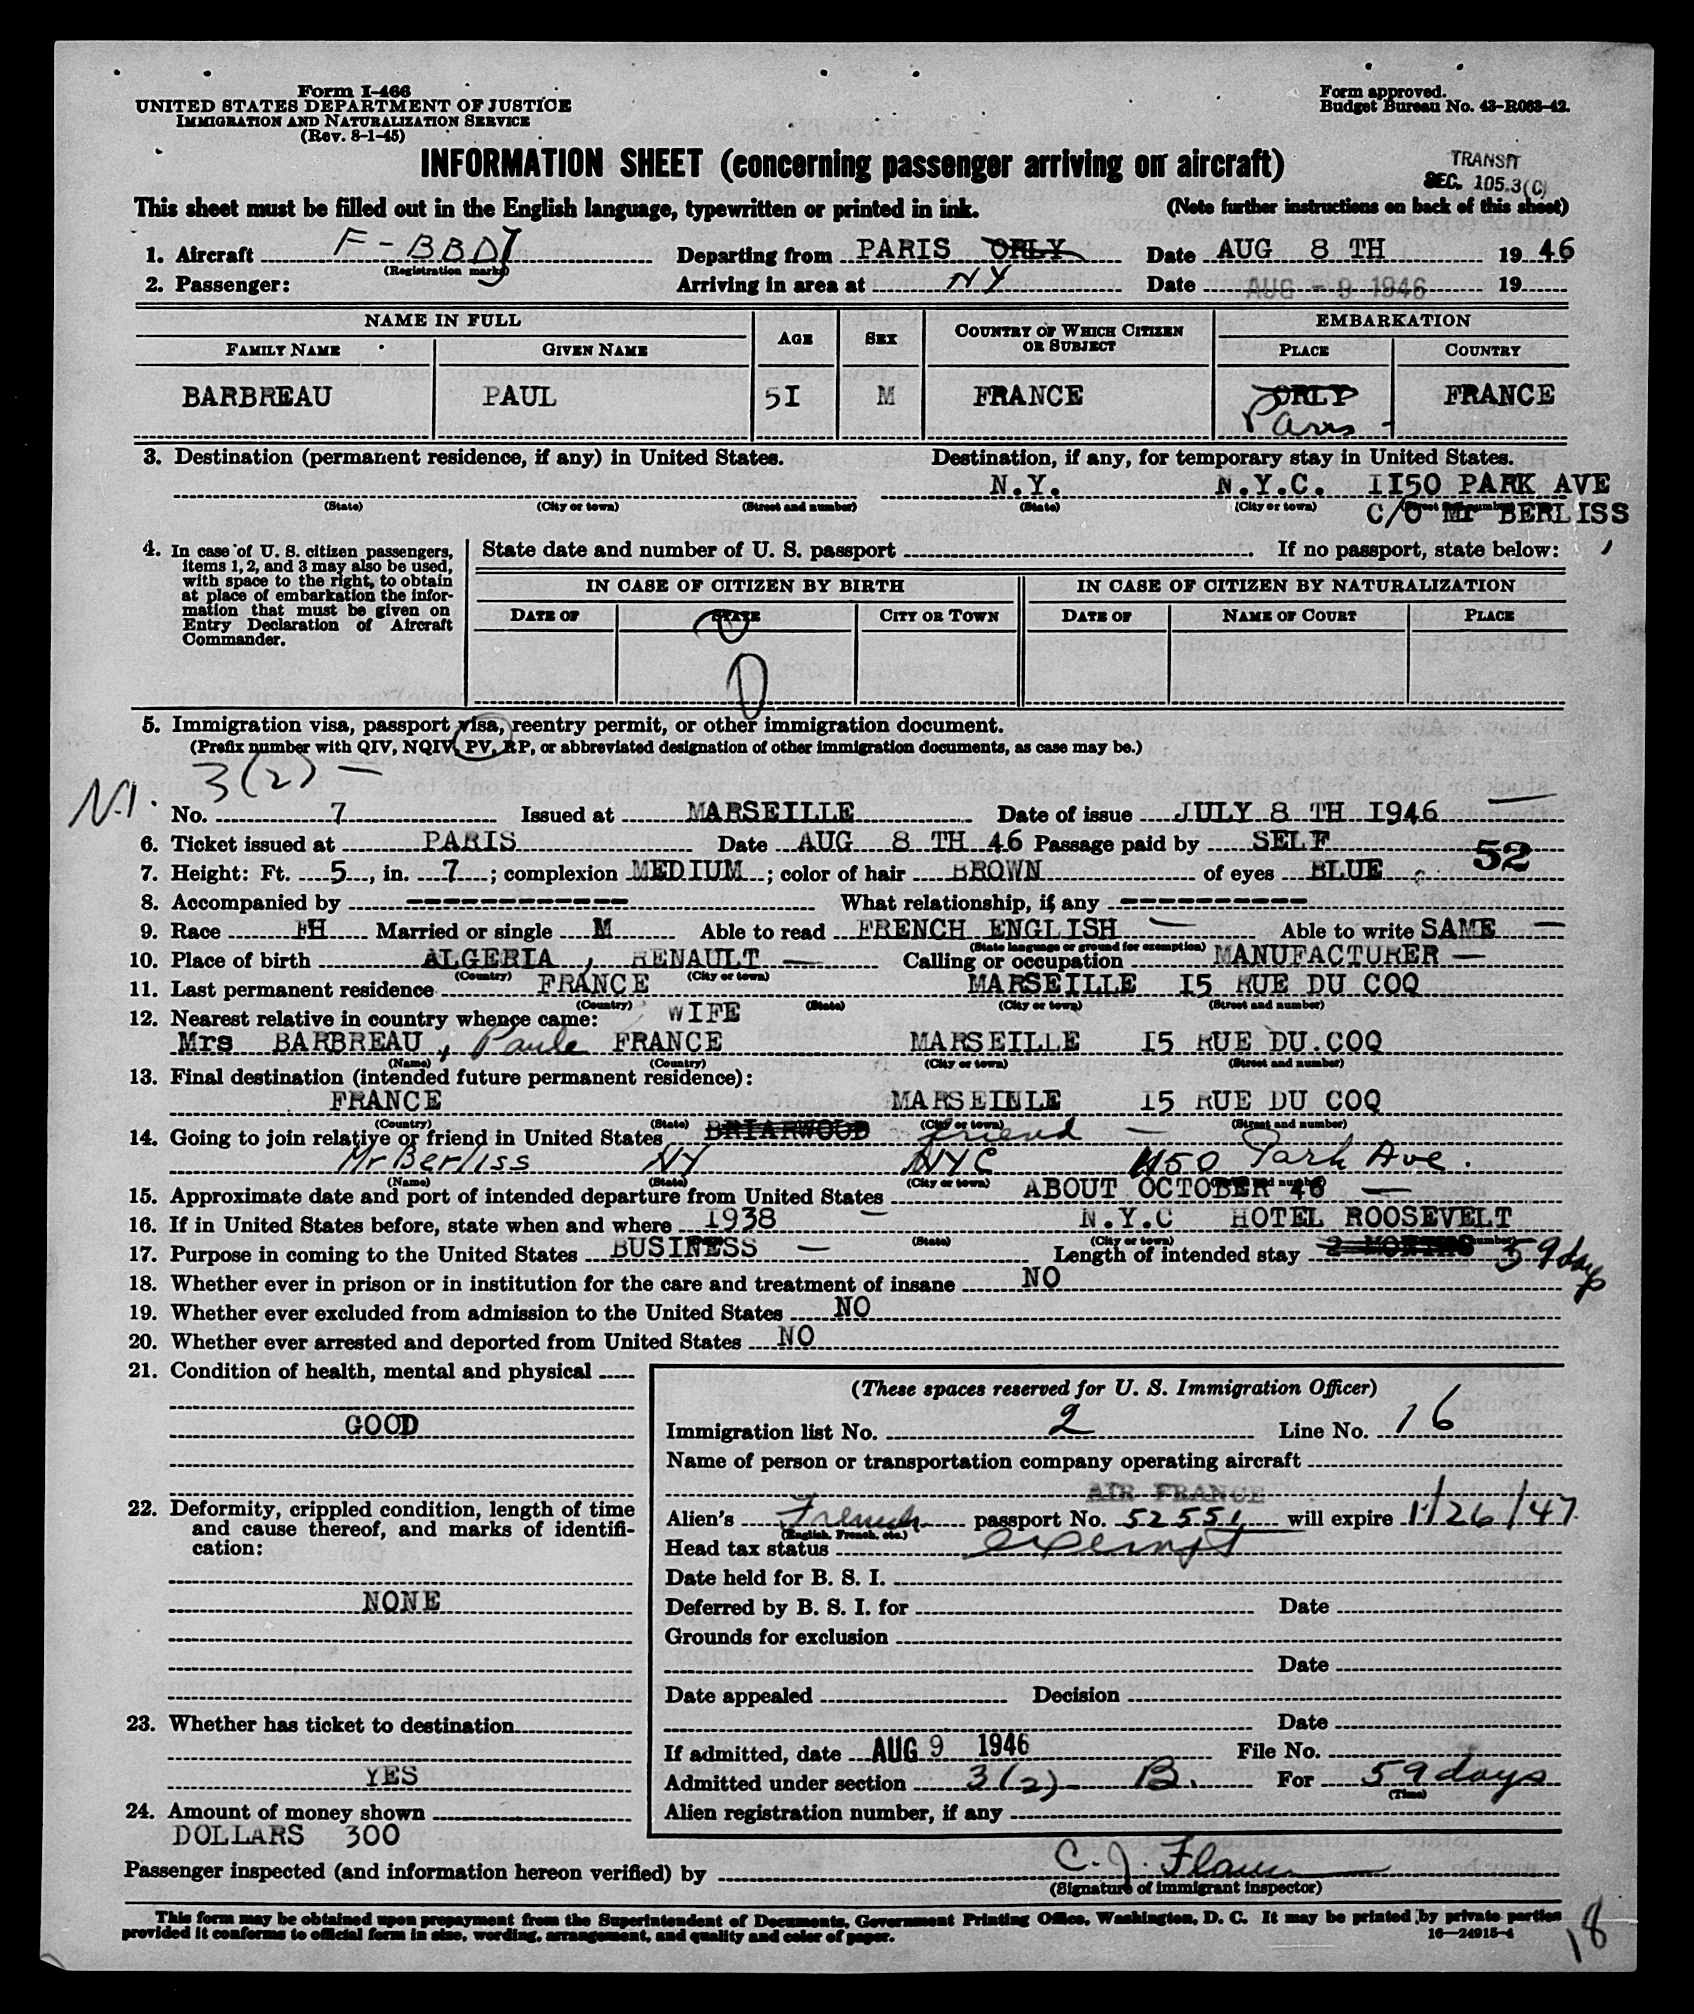 Form I-466
UNITED STATES DEPARTMENT OF JUSTICE
IMMIGRATION AND NATURALIZATION SERVICE
(Rev. 8-1-45)
Form approved.
Budget Bureau No. 43-R063-42.
INFORMATION SHEET (concerning passenger arriving on aircraft)
TRANSIT
SEC. 105.3(C)
This sheet must be filled out in the English language, typewritten or printed in ink.
(Note further instructions on back of this sheet)
1. Aircraft F-BBDJ Departing from PARIS ORLY Date AUG 8 TH 19 46
(Registration marks)
2. Passenger: Arriving in area at NY Date AUG - 9 1946 19
NAME IN FULL AGE SEX COUNTRY OF WHICH CITIZEN OR SUBJECT EMBARKATION
FAMILY NAME GIVEN NAME PLACE COUNTRY
BARBREAU PAUL 5I M FRANCE ORLY FRANCE
Paris
3. Destination (permanent residence, if any) in United States. Destination, if any, for temporary stay in United States.
N.Y. N.Y.C. II50 PARK AVE
(State) (City or town) (Street and number) (State) (City or town) (Street and number)
C/O Mr BERLISS
4. In case of U. S. citizen passengers,
items 1, 2, and 3 may also be used,
with space to the right, to obtain
at place of embarkation the infor-
mation that must be given on
Entry Declaration of Aircraft
Commander.
State date and number of U. S. passport If no passport, state below:
IN CASE OF CITIZEN BY BIRTH IN CASE OF CITIZEN BY NATURALIZATION
DATE OF STATE CITY OR TOWN DATE OF NAME OF COURT PLACE
5. Immigration visa, passport visa, reentry permit, or other immigration document.
(Prefix number with QIV, NQIV, PV, RP, or abbreviated designation of other immigration documents, as case may be.)
3(2) -
N.I.
No. 7 Issued at MARSEILLE Date of issue JULY 8 TH I946
6. Ticket issued at PARIS Date AUG 8 TH 46 Passage paid by SELF
52
7. Height: Ft. 5, in. 7; complexion MEDIUM; color of hair BROWN of eyes BLUE
8. Accompanied by ------------ What relationship, if any ----------
9. Race FH Married or single M Able to read FRENCH ENGLISH Able to write SAME
(State language or ground for exemption)
10. Place of birth ALGERIA, RENAULT Calling or occupation MANUFACTURER
(Country) (City or town)
11. Last permanent residence FRANCE MARSEILLE I5 RUE DU COQ
(Country) (State) (City or town) (Street and number)
12. Nearest relative in country whence came: WIFE
Mrs BARBREAU, Paule FRANCE MARSEILLE I5 RUE DU.COQ
(Name) (Country) (City or town) (Street and number)
13. Final destination (intended future permanent residence):
FRANCE MARSEILLE I5 RUE DU COQ
(Country) (State) (City or town) (Street and number)
14. Going to join relative or friend in United States BRIARWOOD friend
Mr Berliss NY NYC 1150 Park Ave.
(Name) (State) (City or town) (Street and number)
15. Approximate date and port of intended departure from United States ABOUT OCTOBER 46
16. If in United States before, state when and where I938 N.Y.C HOTEL ROOSEVELT
(State) (City or town) (Street and number)
17. Purpose in coming to the United States BUSINESS Length of intended stay 2 MONTHS 59 days
18. Whether ever in prison or in institution for the care and treatment of insane NO
19. Whether ever excluded from admission to the United States NO
20. Whether ever arrested and deported from United States NO
21. Condition of health, mental and physical
GOOD
22. Deformity, crippled condition, length of time
and cause thereof, and marks of identifi-
cation:
NONE
23. Whether has ticket to destination
YES
24. Amount of money shown
DOLLARS 300
(These spaces reserved for U. S. Immigration Officer)
Immigration list No. 2 Line No. 16
Name of person or transportation company operating aircraft
AIR FRANCE
Alien's French passport No. 52551 will expire 1/26/47
(English, French, etc.)
Head tax status exempt
Date held for B. S. I.
Deferred by B. S. I. for Date
Grounds for exclusion
Date
Date appealed Decision
Date
If admitted, date AUG 9 1946 File No.
Admitted under section 3(2) - B. For 59 days
(Time)
Alien registration number, if any
Passenger inspected (and information hereon verified) by C. J.
(Signature of immigrant inspector)
This form may be obtained upon prepayment from the Superintendent of Documents, Government Printing Office, Washington, D. C. It may be printed by private parties
provided it conforms to official form in size, wording, arrangement, and quality and color of paper.
16—24915-4
18